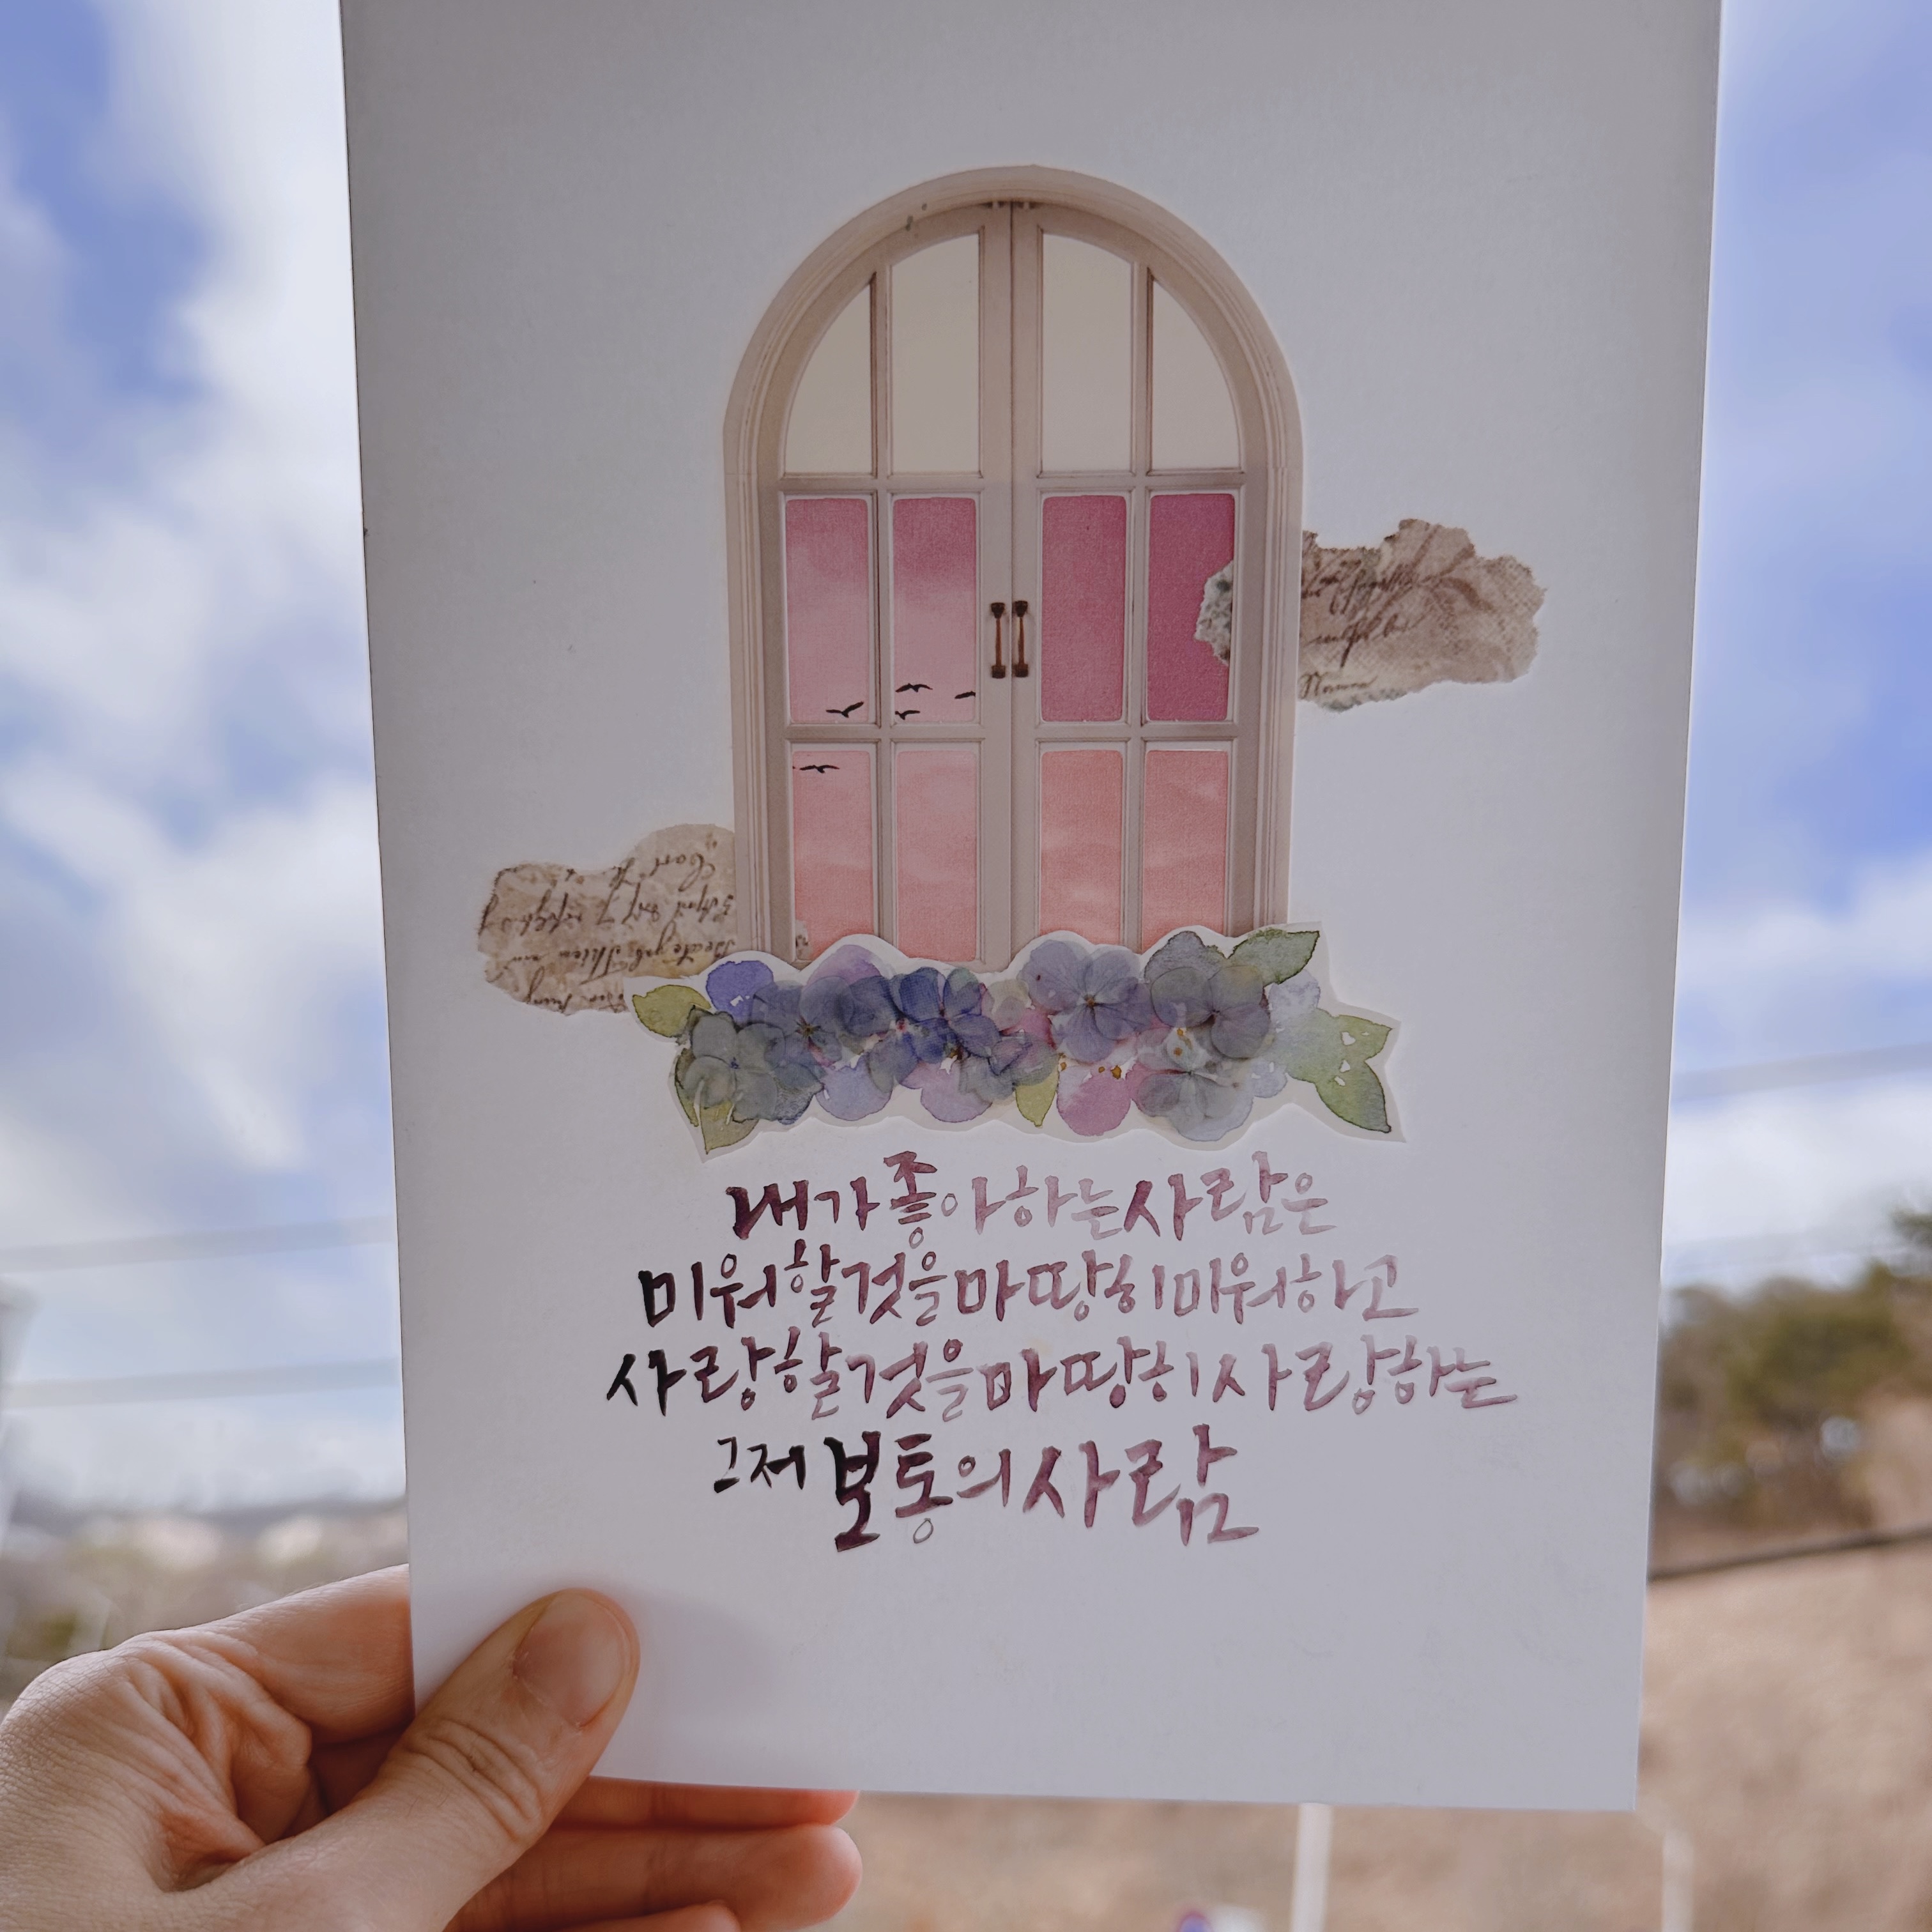 내가 좋아하는 사람은
미워할 것을 마땅히 미워하고
사랑할 것을 마땅히 사랑하는
그저 보통의 사람